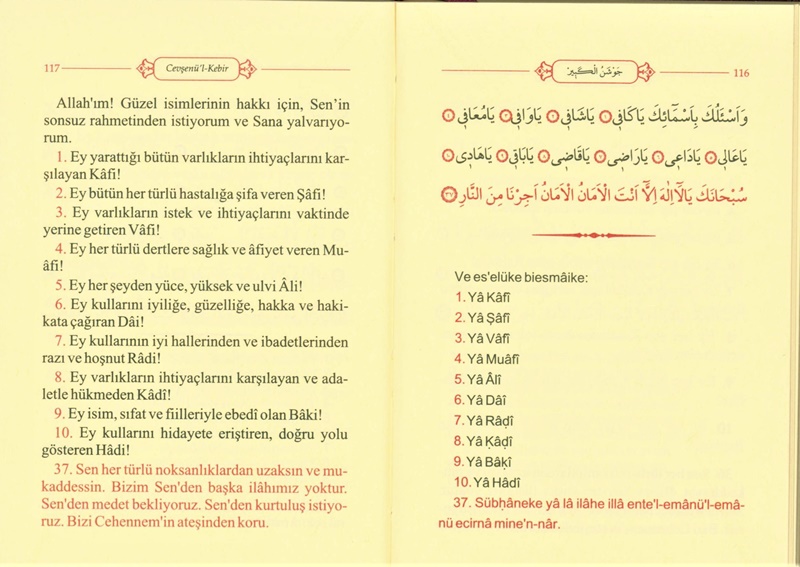 117
Cevşenü'l-Kebir
Allah'ım! Güzel isimlerinin hakkı için, Sen'in
sonsuz rahmetinden istiyorum ve Sana yalvarıyo-
rum.
1. Ey yarattığı bütün varlıkların ihtiyaçlarını kar-
şılayan Kâfi!
2. Ey bütün her türlü hastalığa şifa veren Şâfi!
3. Ey varlıkların istek ve ihtiyaçlarını vaktinde
yerine getiren Vâfi!
4. Ey her türlü dertlere sağlık ve âfiyet veren Mu-
âfi!
5. Ey her şeyden yüce, yüksek ve ulvi Âli!
6. Ey kullarını iyiliğe, güzelliğe, hakka ve haki-
kata çağıran Dâi!
7. Ey kullarının iyi hallerinden ve ibadetlerinden
razı ve hoşnut Râdi!
8. Ey varlıkların ihtiyaçlarını karşılayan ve ada-
letle hükmeden Kâdî!
9. Ey isim, sıfat ve fiilleriyle ebedî olan Bâki!
10. Ey kullarını hidayete eriştiren, doğru yolu
gösteren Hâdi!
37. Sen her türlü noksanlıklardan uzaksın ve mu-
kaddessin. Bizim Sen'den başka ilâhımız yoktur.
Sen'den medet bekliyoruz. Sen'den kurtuluş istiyo-
ruz. Bizi Cehennem'in ateşinden koru.
جَوْشَنُ الْكَبِيرْ
116
وَاَسْئَلُكَ بِاَسْمَائِكَ يَاكَافِى يَاشَافِى يَاوَافِى يَامُعَافِى
يَاعَالِى يَادَاعِى يَارَاضِى يَاقَاضِى يَابَاقِى يَاهَادِى
سُبْحَانَكَ يَالَٓااِلٰهَ اِلَّٓا اَنْتَ الْاَمَانُ الْاَمَانُ اَجِرْنَا مِنَ النَّارِ ٣٧
Ve es'elüke biesmâike:
1. Yâ Kâfî
2. Yâ Şâfî
3. Yâ Vâfî
4. Yâ Muâfî
5. Yâ Âlî
6. Yâ Dâî
7. Yâ Râḍî
8. Yâ Ḳâḍî
9. Yâ Bâḳî
10. Yâ Hâdî
37. Sübḥâneke yâ lâ ilâhe illâ ente'l-emânü'l-emâ-
nü ecirnâ mine'n-nâr.